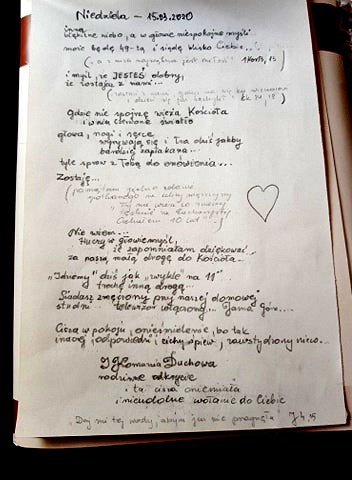 Niedziela - 15.03.2020
inna...
błękitne niebo, a w głowie niespokojne myśli
może będę 49-tą i siądę blisko Ciebie...
(... a z nich największa jest miłość) 1Kor13,13
i myśl, że JESTEŚ dobry,
że zostają z nami...
(zostań z nami, gdyż ma się ku wieczorowi
i dzień się już nachylił) Łk 24,
Gdzie nie spojrzę wieża Kościoła
i w nim ciemne światło
głowa, nogi i ręce
wyrywają się i Tra dziś jakby
bardziej zapłakana...
tyle spraw z Tobą do omówienia...
Zostaję...
(pamiętam jedno zdanie
10 lat
Nie wiem...
tłuczą w głowie myśl,
że zapomniałam dziękować
za naszą małą drogę do Kościoła...
"Idziemy" dziś jak "zwykle na 11"
trochę inną drogą...
Siadasz zmęczony przy naszej domowej
studni... telewizor włączony... Jasna Góra...
Cisza w pokoju, onieśmielenie, bo tak
inaczej, odpowiedzi i cichy śpiew, zawstydzony nieco...
Komunia Duchowa
rodzinne odkrycie
i ta cisza oniemiała
i nieudolne wołanie do Ciebie
"Daj mi tej wody, abym już nie pragnęła" J 4,15